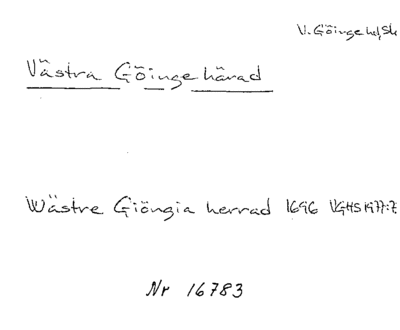 V. Göinge hd, Sk
Västra Göinge härad
Wästre Giöngia herrad 1696 VGHS 1977:7
Nr 16783